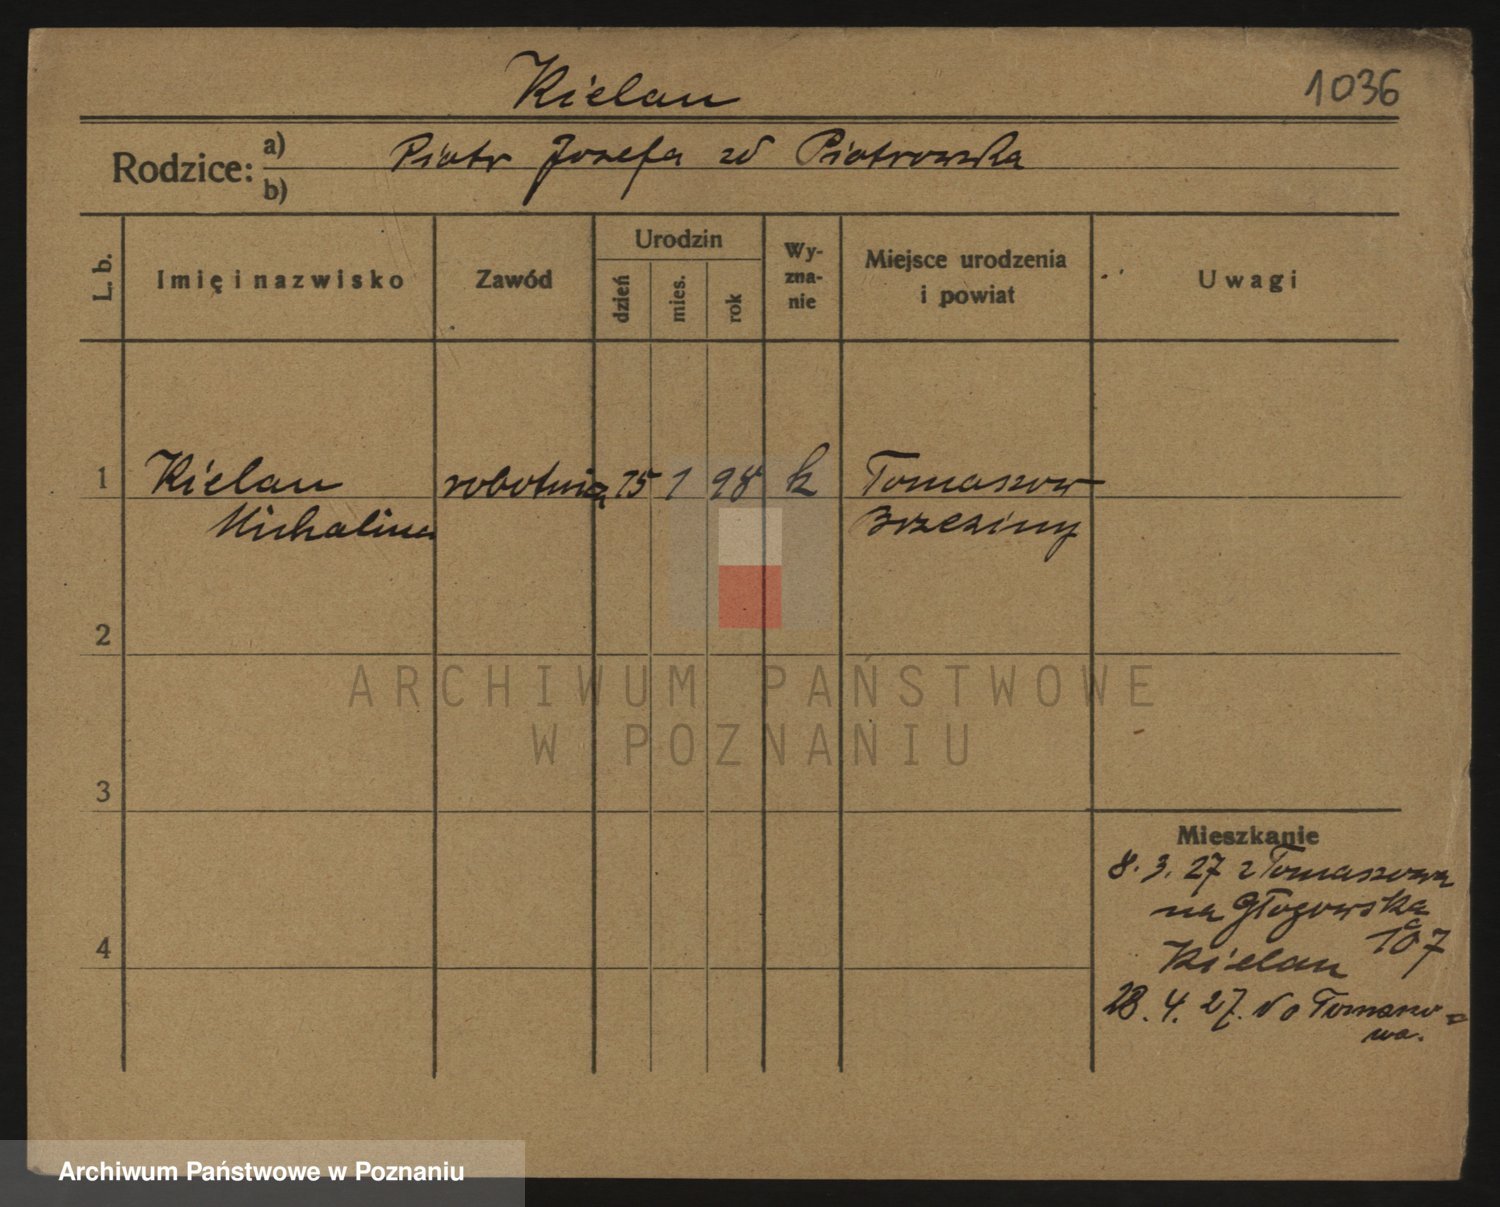 Kielan
1036
Rodzice: a) b)
Piotr Józefa zd Piotrowska
L. b.
Imię i nazwisko
Zawód
Urodzin
dzień
mies.
rok
Wy-
zna-
nie
Miejsce urodzenia
i powiat
Uwagi
1
Kielan
Michalina
robotnica
15 1 98 k
Tomaszow
Brzeziny
2
3
4
Mieszkanie
8. 3. 27 z Tomaszowa
na Głogowska
107
Kielan
28. 4. 27. do Tomaszo=
wa.
ARCHIWUM PAŃSTWOWE
W POZNANIU
Archiwum Państwowe w Poznaniu